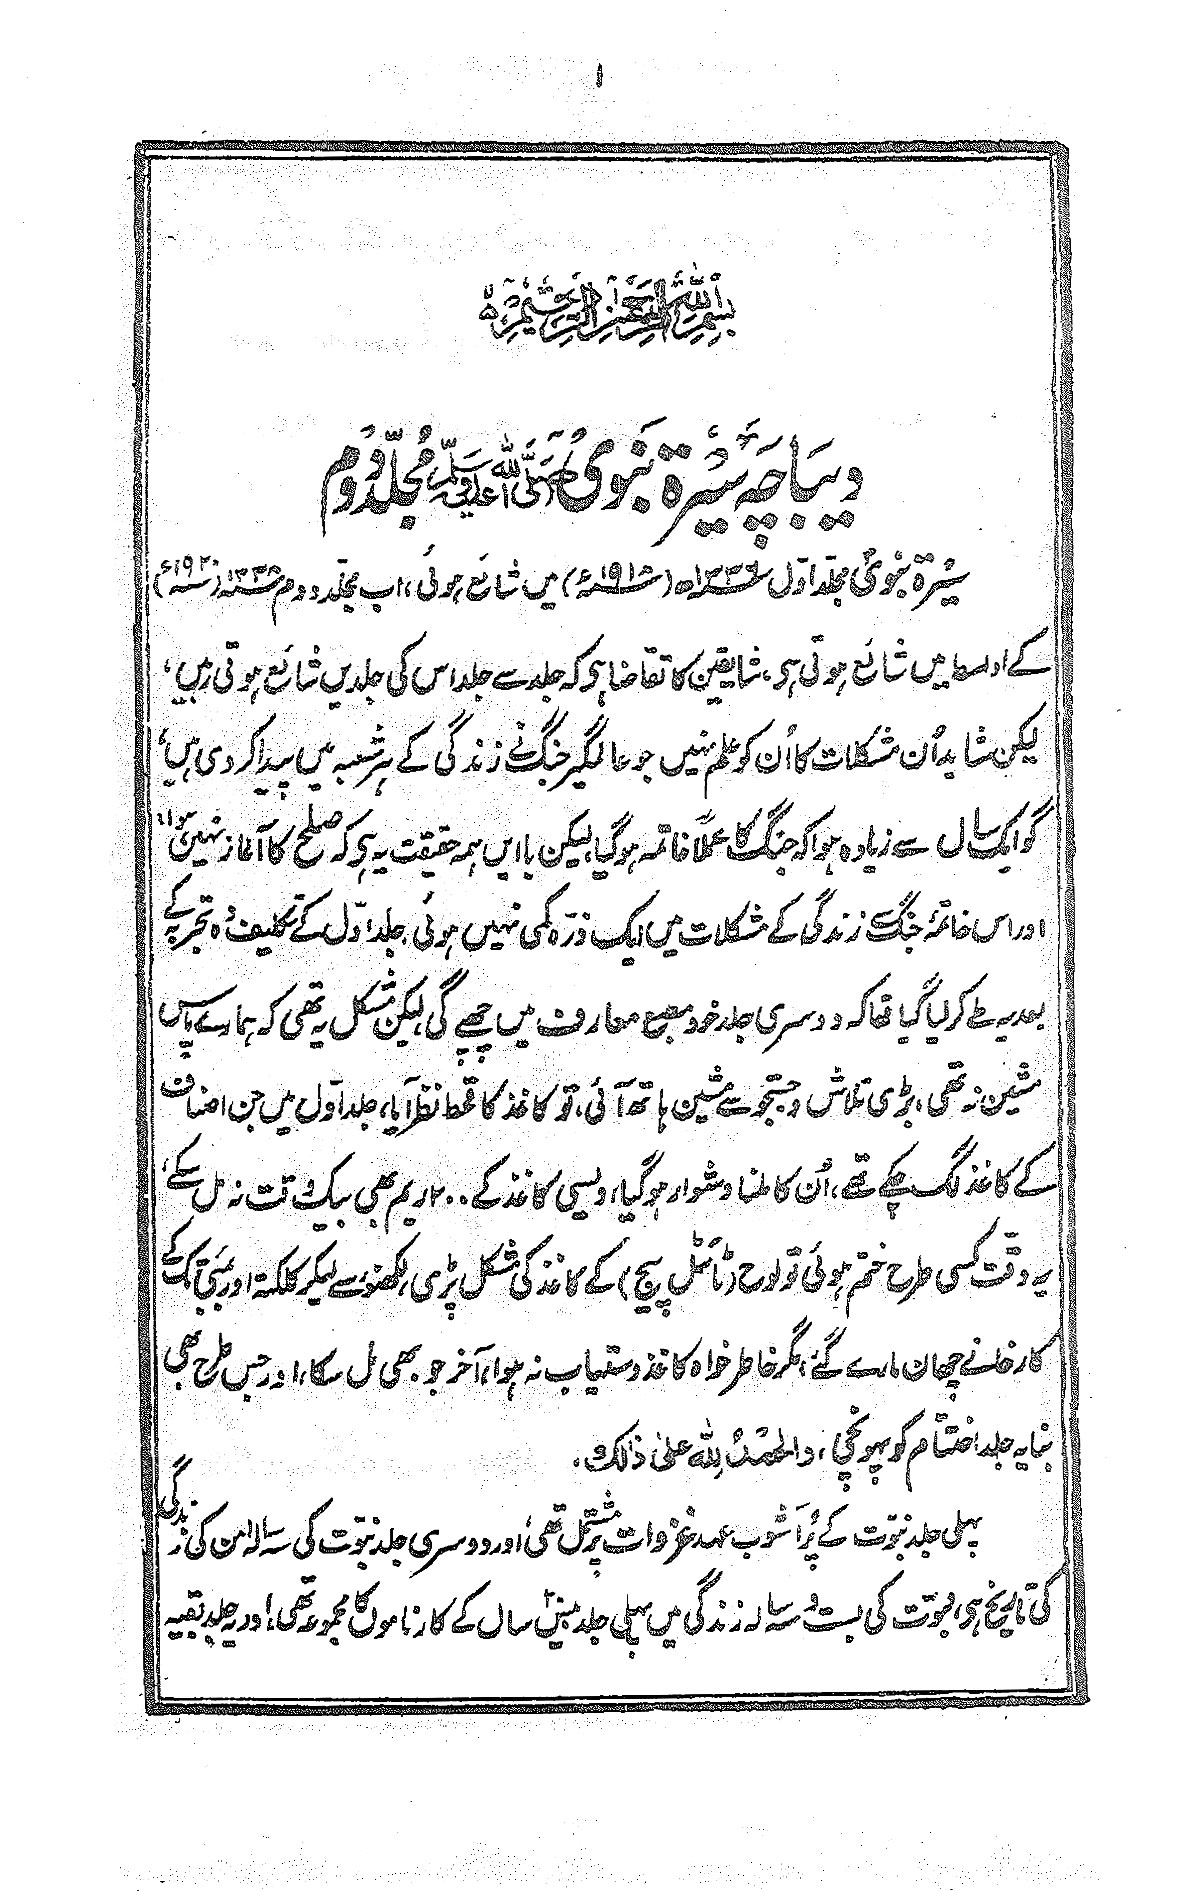 ۱
بسم اللہ الرحمن الرحیم ہ
دیباچہ سیرۃ نبوی صلی اللہ علیہ وسلم مجلد دوم
سیرۃ نبوی مجلد اوّل ۱۳۳۶ھ (۱۹۱۸ء) میں شائع ہوئی، اب مجلد دوم ۱۳۳۸ھ (۱۹۲۰ء)
کے اواسط میں شائع ہوتی ہی، شایقین کا تقاضا ہی کہ جلد سے جلد اس کی جلدیں شائع ہوتی رہیں،
لیکن شاید اُن مشکلات کا اُن کو علم نہیں جو عالمگیر جنگ نے زندگی کے ہر شعبہ میں پیدا کر دی ہیں،
گو ایک سال سے زیادہ ہوا کہ جنگ کا عملاً خاتمہ ہوگیا، لیکن بااین ہمہ حقیقت یہ ہی کہ صلح کا آغاز نہیں ہوا،
اور اس خاتمۂ جنگ سے زندگی کے مشکلات میں ایک ذرّہ کمی نہیں ہوئی، جلد اوّل کے تکلیف دہ تجربہ کے
بعد یہ طے کرلیا گیا تھا کہ دوسری جلد خود مطبع معارف میں چھپے گی، لیکن مشکل یہ تھی کہ ہمارے پاس
مشین نہ تھی، بڑی تلاش و جستجو سے مشین ہاتھ آئی، تو کاغذ کا قحط نظر آیا، جلد اوّل میں جن اصناف
کے کاغذ لگ چکے تھے، اُن کا ملنا دشوار ہوگیا، دیسی کاغذ کے ۲۰۰ ریم بھی بیک وقت نہ مل سکے،
یہ وقت کسی طرح ختم ہوئی تو لوح (ٹائٹل پیج) کے کاغذ کی مشکل پڑی، لکھنؤ سے لیکر کلکتہ اور بمبئی تک کے
کارخانے چھان مارے گئے، مگر خاطر خواہ کاغذ دستیاب نہ ہوا، آخر جو بھی مل سکا، اور جس طرح بھی
بنا یہ جلد اختتام کو پہونچی، والحمد للہ علی ذالک،
پہلی جلد نبوّت کے پُر آشوب عہد غزوات پر مشتمل تھی، اور دوسری جلد نبوّت کی سہ سالہ امن کی زندگی
کی تاریخ ہی، نبوّت کی بست و سہ سالہ زندگی میں پہلی جلد بیس سال کے کارناموں کا مجموعہ تھی، اور یہ جلد بقیہ